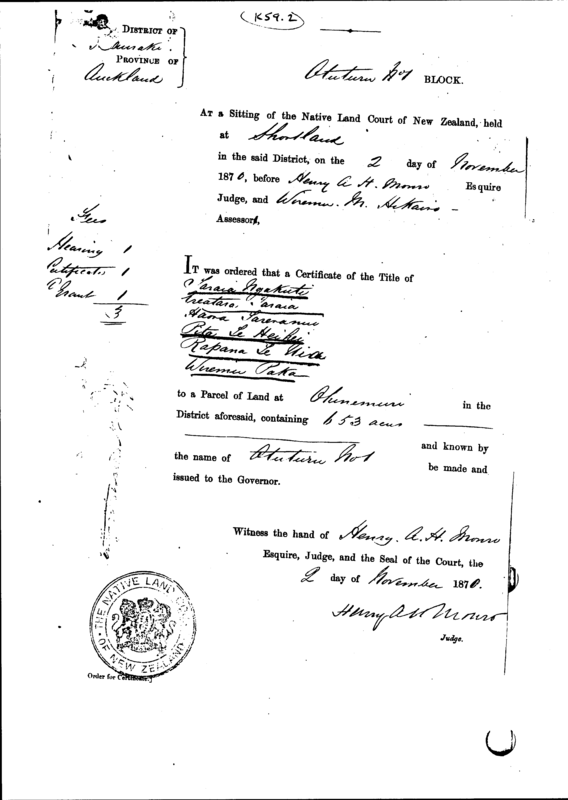 K59.2
DISTRICT OF
Hauraki.
PROVINCE OF
Auckland
Otuturu No 1 BLOCK.
AT a Sitting of the Native Land Court of New Zealand, held
at Shortland
in the said District, on the 2 day of November
1870, before Henry A. H. Monro Esquire
Judge, and Wiremu. M. Hikairo -
Assessor,
Fees
Hearing 1
Certificates 1
C Grant 1
3
IT was ordered that a Certificate of the Title of
Taraia Ngakuti
Taraia
Haora Tareranui
Pita Te
Rapana Te
Wiremu Paka
to a Parcel of Land at Ohinemuri in the
District aforesaid, containing 653 acres
and known by
the name of Otuturu No 1 be made and
issued to the Governor.
Witness the hand of Henry. A. H. Monro
Esquire, Judge, and the Seal of the Court, the
2 day of November 1870.
Henry A H Monro
Judge.
THE NATIVE LAND COURT
OF NEW ZEALAND
Order for Certificate.]